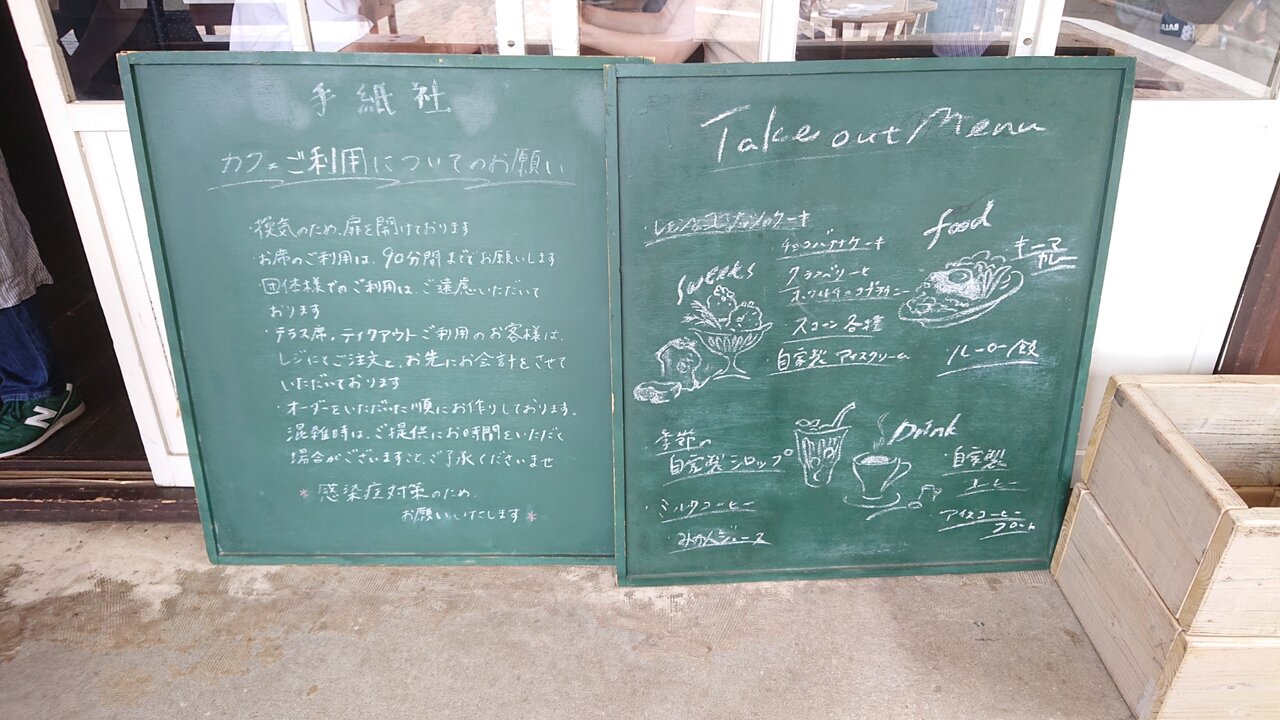 手紙社
カフェご利用についてのお願い
・換気のため、扉を開けております
・お席のご利用は、90分間までお願いします
団体様でのご利用は、ご遠慮いただいて
おります
・テラス席、テイクアウトご利用のお客様は、
レジにてご注文と、お先にお会計をさせて
いただいております
・オーダーをいただいた順にお作りしております。
混雑時は、ご提供にお時間をいただく
場合がございますこと、ご了承くださいませ
* 感染症対策のため、
お願いいたします *
Take out Menu
sweets
チョコバナナケーキ
クランベリーと
スコーン各種
・自家製 アイスクリーム
food
・キーマ
カレー
・ルーロー飯
Drink
・季節の
自家製シロップ
・ミルクコーヒー
・みかんジュース
・自家製
・アイスコーヒー
フロート
N